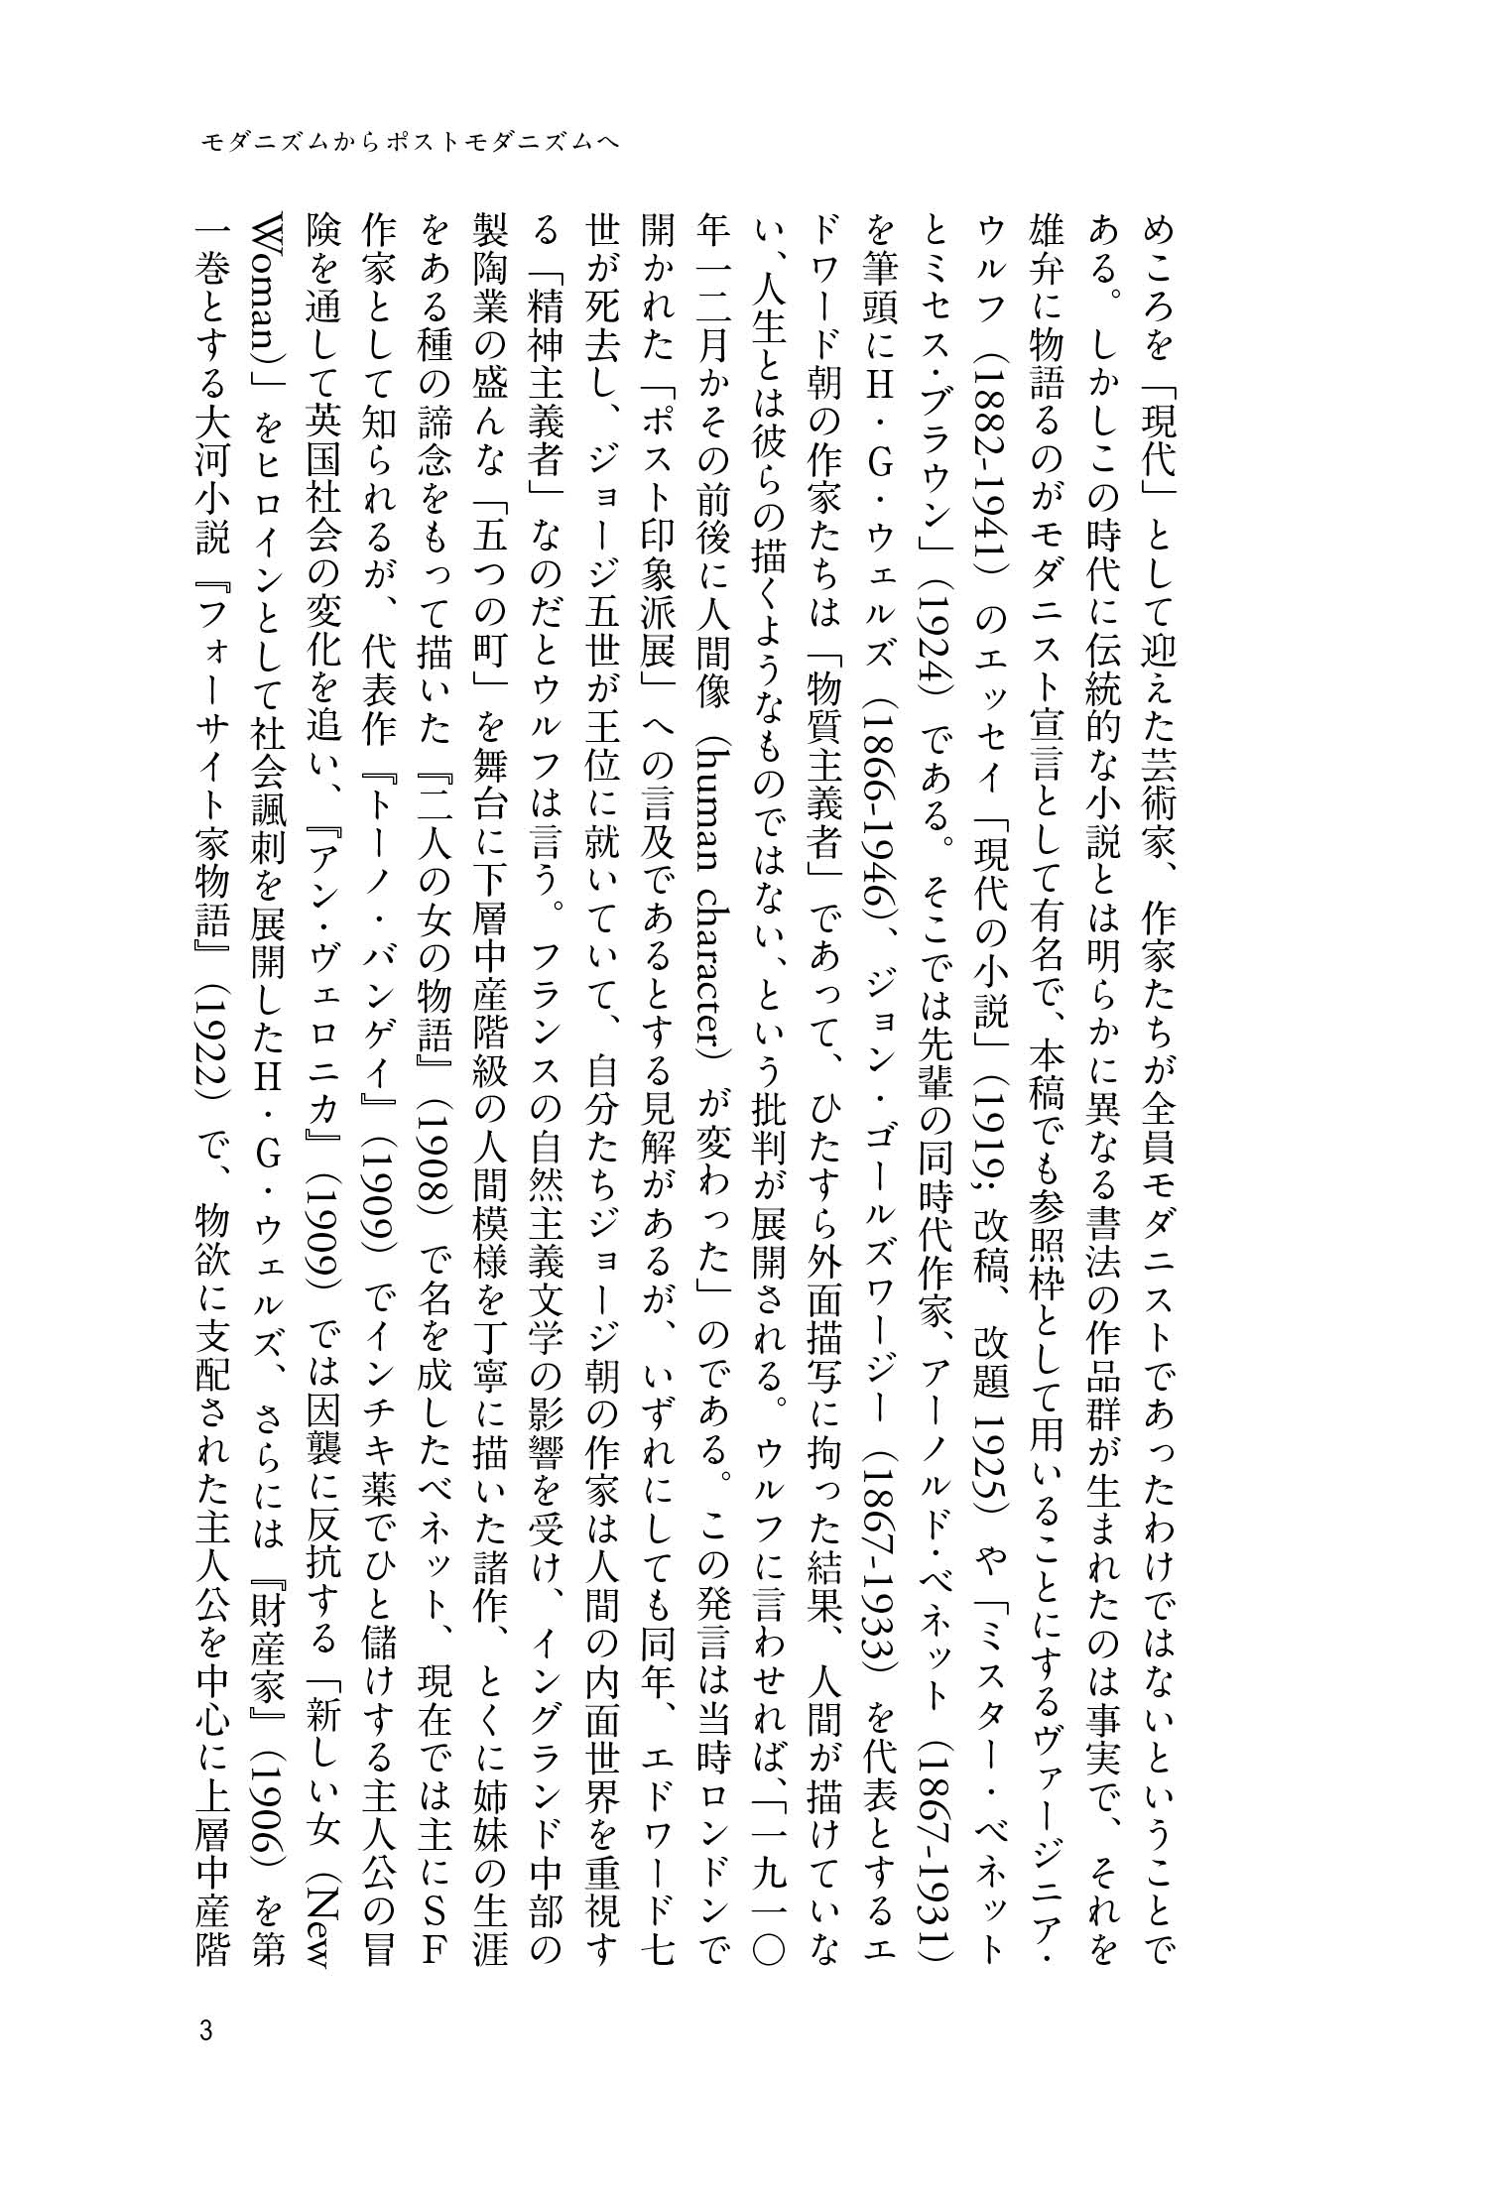 モダニズムからポストモダニズムへ
めころを「現代」として迎えた芸術家、作家たちが全員モダニストであったわけではないということで
ある。しかしこの時代に伝統的な小説とは明らかに異なる書法の作品群が生まれたのは事実で、それを
雄弁に物語るのがモダニスト宣言として有名で、本稿でも参照枠として用いることにするヴァージニア・
ウルフ（1882-1941）のエッセイ「現代の小説」（1919; 改稿、改題 1925）や「ミスター・ベネット
とミセス・ブラウン」（1924）である。そこでは先輩の同時代作家、アーノルド・ベネット（1867-1931）
を筆頭にH・G・ウェルズ（1866-1946）、ジョン・ゴールズワージー（1867-1933）を代表とするエ
ドワード朝の作家たちは「物質主義者」であって、ひたすら外面描写に拘った結果、人間が描けていな
い、人生とは彼らの描くようなものではない、という批判が展開される。ウルフに言わせれば、「一九一〇
年一二月かその前後に人間像（human character）が変わった」のである。この発言は当時ロンドンで
開かれた「ポスト印象派展」への言及であるとする見解があるが、いずれにしても同年、エドワード七
世が死去し、ジョージ五世が王位に就いていて、自分たちジョージ朝の作家は人間の内面世界を重視す
る「精神主義者」なのだとウルフは言う。フランスの自然主義文学の影響を受け、イングランド中部の
製陶業の盛んな「五つの町」を舞台に下層中産階級の人間模様を丁寧に描いた諸作、とくに姉妹の生涯
をある種の諦念をもって描いた『二人の女の物語』（1908）で名を成したベネット、現在では主にSF
作家として知られるが、代表作『トーノ・バンゲイ』（1909）でインチキ薬でひと儲けする主人公の冒
険を通して英国社会の変化を追い、『アン・ヴェロニカ』（1909）では因襲に反抗する「新しい女（New
Woman）」をヒロインとして社会諷刺を展開したH・G・ウェルズ、さらには『財産家』（1906）を第
一巻とする大河小説『フォーサイト家物語』（1922）で、物欲に支配された主人公を中心に上層中産階
3